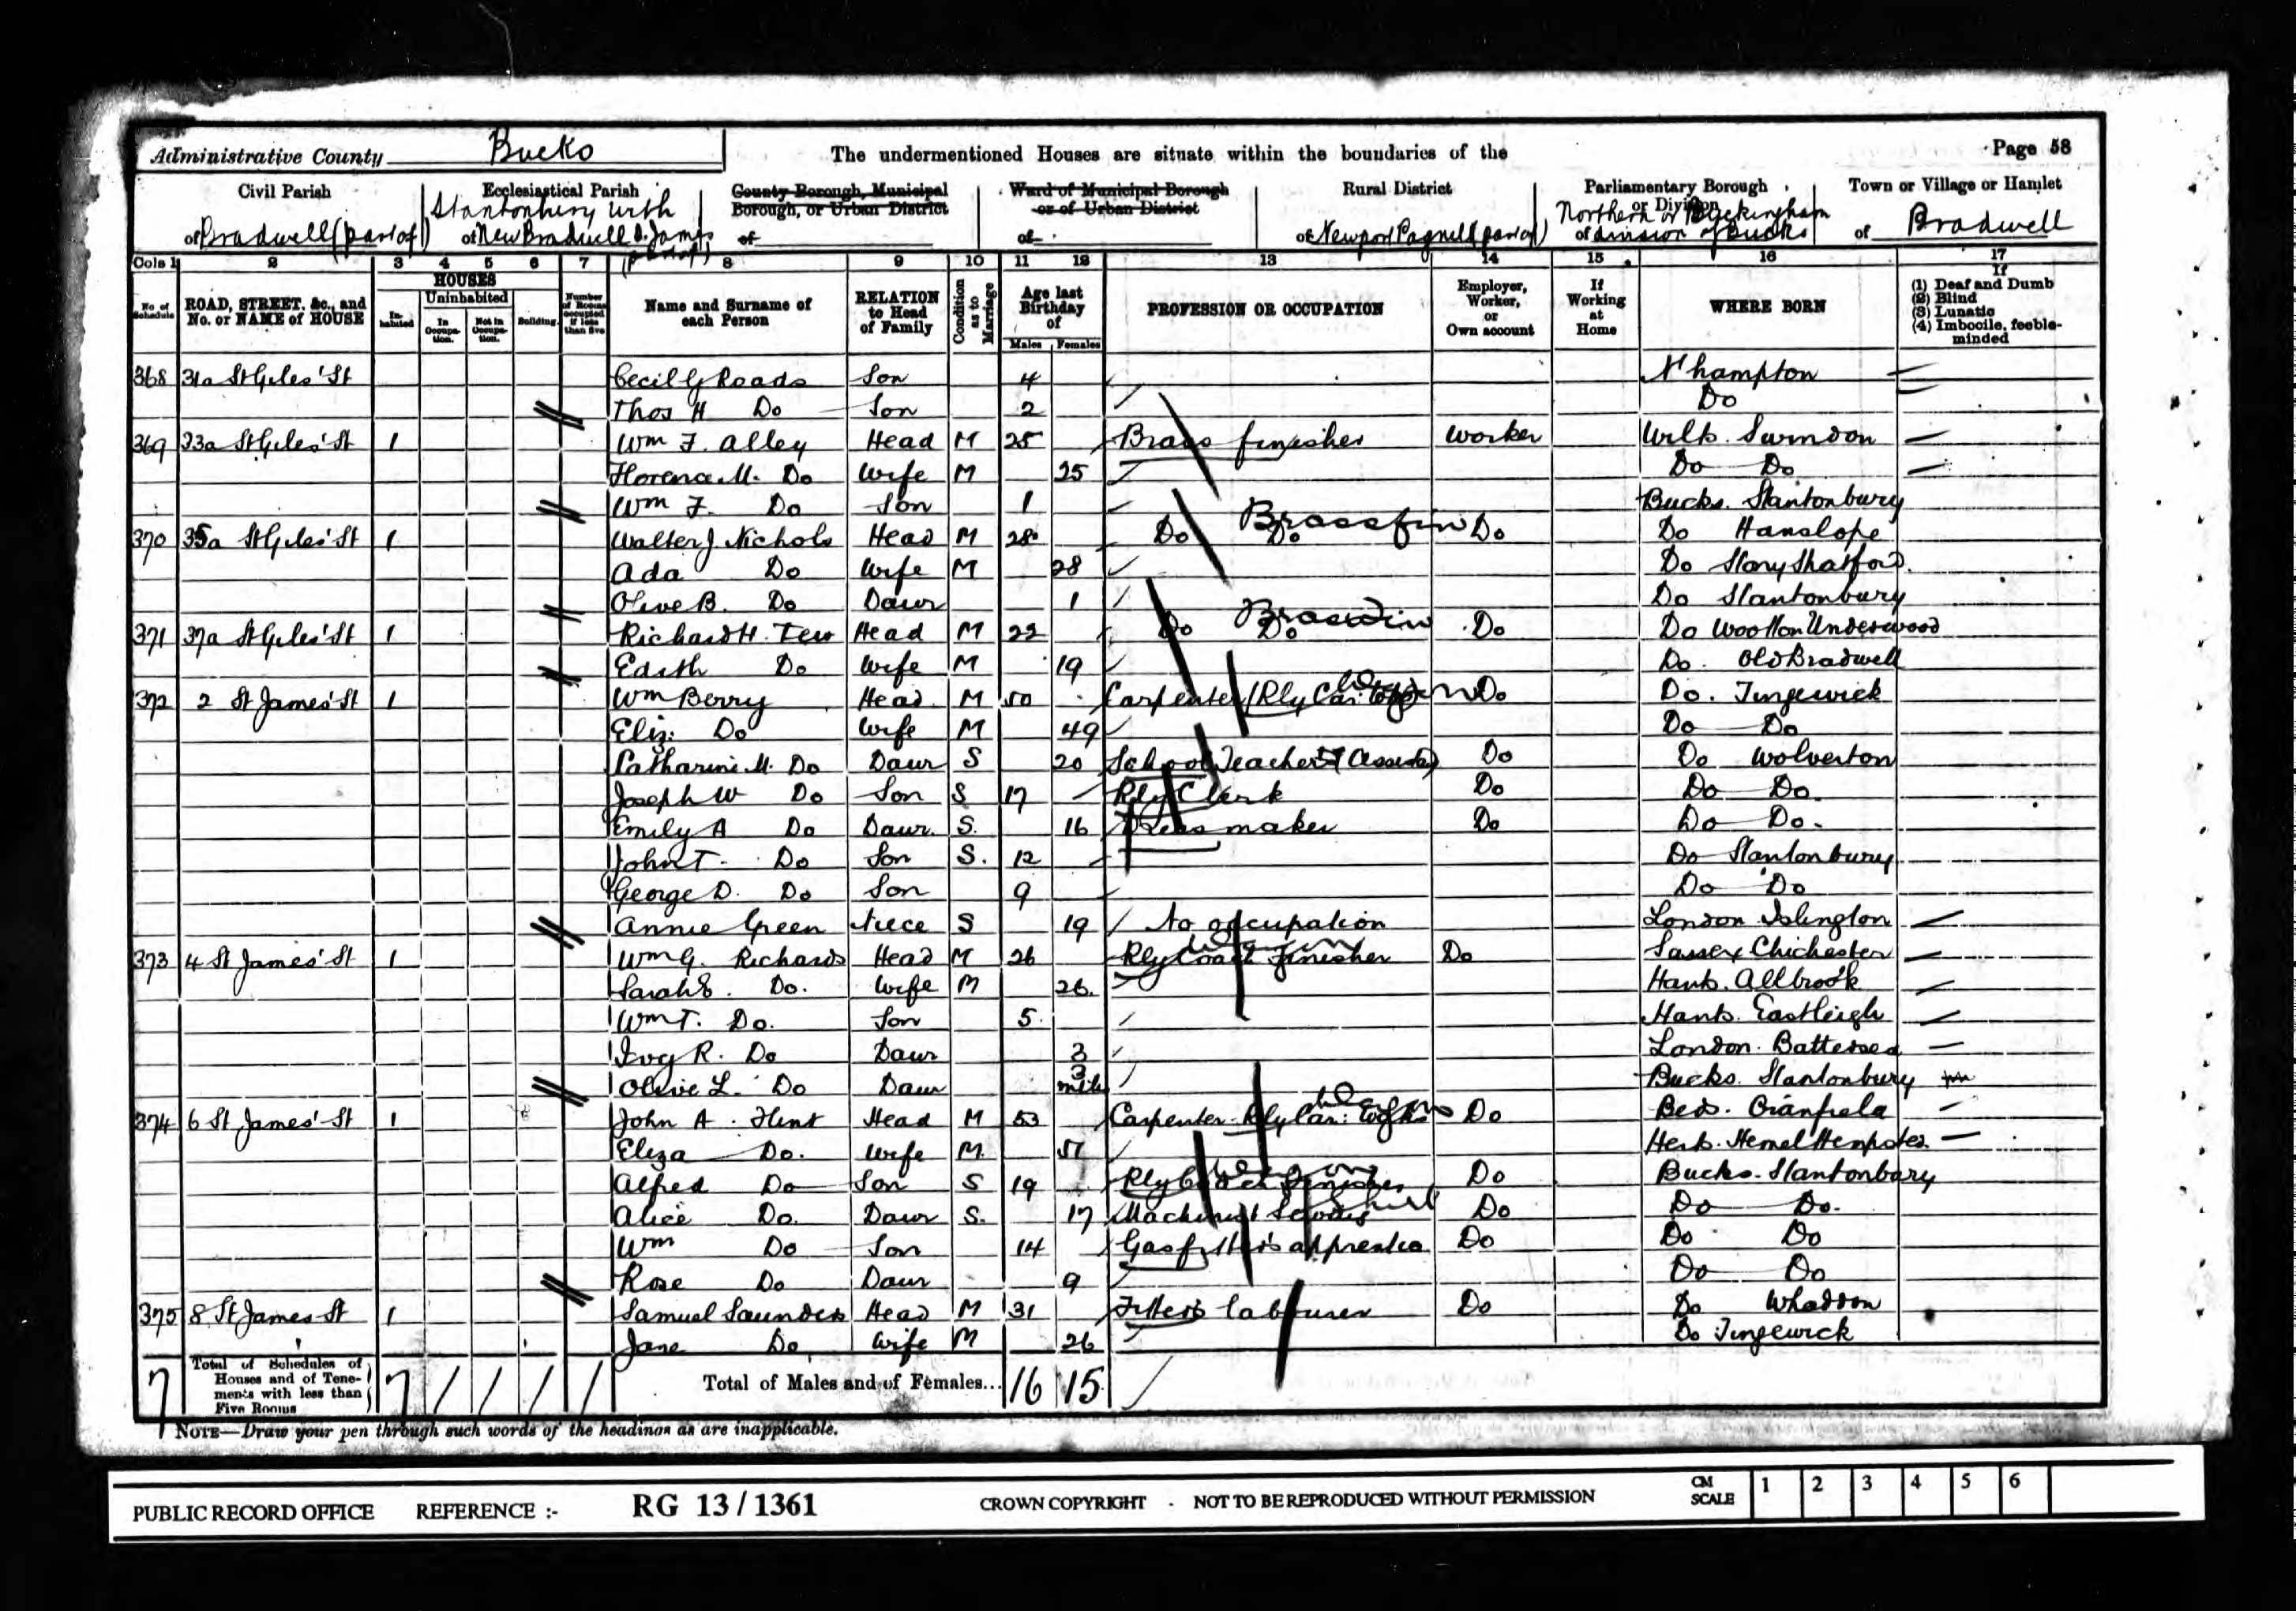 Administrative County Bucks The undermentioned Houses are situate within the boundaries of the Page 58
Civil Parish of Bradwell (part of)
Ecclesiastical Parish of Stantonbury with New Bradwell St. James (part of)
County Borough, Municipal Borough, or Urban District of
Ward of Municipal Borough or of Urban District of
Rural District of Newport Pagnell (part of)
Parliamentary Borough or Division of Northern or Buckingham division of Bucks
Town or Village or Hamlet of Bradwell
Cols 1 2 3 4 5 6 7 8 9 10 11 12 13 14 15 16 17
No. of Schedule
ROAD, STREET, &c., and No. or NAME of HOUSE
HOUSES
Inhabited
Uninhabited
In Occupation.
Not in Occupation.
Building.
Number of Rooms occupied if less than five
Name and Surname of each Person
RELATION to Head of Family
Condition as to Marriage
Age last Birthday of
Males Females
PROFESSION OR OCCUPATION
Employer, Worker, or Own account
If Working at Home
WHERE BORN
If
(1) Deaf and Dumb
(2) Blind
(3) Lunatic
(4) Imbecile, feeble-minded
368 31a St Giles' St Cecil G Roads Son 4 N'hampton
Thos H Do Son 2 Do
369 33a St Giles' St 1 Wm F. Alley Head M 25 Brass finisher Worker Wilts. Swindon
Florence M. Do Wife M 25 Do Do
Wm F. Do Son 1 Bucks. Stantonbury
370 35a St Giles' St 1 Walter J Nichols Head M 28 Do Do Brassfin Do Do Hanslope
Ada Do Wife M 28 Do Stony Stratford
Olive B. Do Daur 1 Do Stantonbury
371 37a St Giles' St 1 Richard H. Tew Head M 22 Do Do Do Do Wootton Underwood
Edith Do Wife M 19 Do Old Bradwell
372 2 St James' St 1 Wm Berry Head M 50 Carpenter (Rly Car: Do Do. Tingewick
Eliz. Do Wife M 49 Do Do
Catharine M. Do Daur S 20 School Teacher Do Do Wolverton
Joseph W Do Son S 17 Rly Clerk Do Do Do
Emily A Do Daur. S. 16 Dressmaker Do Do Do
John T. Do Son S. 12 Do Stantonbury
George D. Do Son 9 Do Do
Annie Green Niece S 19 No occupation London Islington
373 4 St James' St 1 Wm G. Richards Head M 26 Rly Coach Finisher Do Sussex Chichester
Sarah E. Do. Wife M 26 Hants. Allbrook
Wm T. Do. Son 5 Hants. Eastleigh
Ivy R. Do Daur 3 London. Battersea
Olive L. Do Daur 3 mths Bucks. Stantonbury
374 6 St James' St 1 John A. Flint Head M 53 Carpenter Rly Car: Do Beds. Cranfield
Eliza Do. Wife M. 51 Herts. Hemel Hempsted
Alfred Do Son S 19 Rly Coach Finisher Do Bucks. Stantonbury
Alice Do. Daur S. 17 Machinist Do Do Do.
Wm Do Son 14 Gasfitters apprentice Do Do Do
Rose Do Daur 9 Do Do
375 8 St James St 1 Samuel Saunders Head M 31 Fitters labourer Do Do Whaddon
Jane Do Wife M 26 Do Tingewick
7 Total of Schedules of Houses and of Tenements with less than Five Rooms 7 Total of Males and of Females... 16 15
NOTE—Draw your pen through such words of the headings as are inapplicable.
PUBLIC RECORD OFFICE REFERENCE :- RG 13/1361 CROWN COPYRIGHT - NOT TO BE REPRODUCED WITHOUT PERMISSION CM SCALE 1 2 3 4 5 6